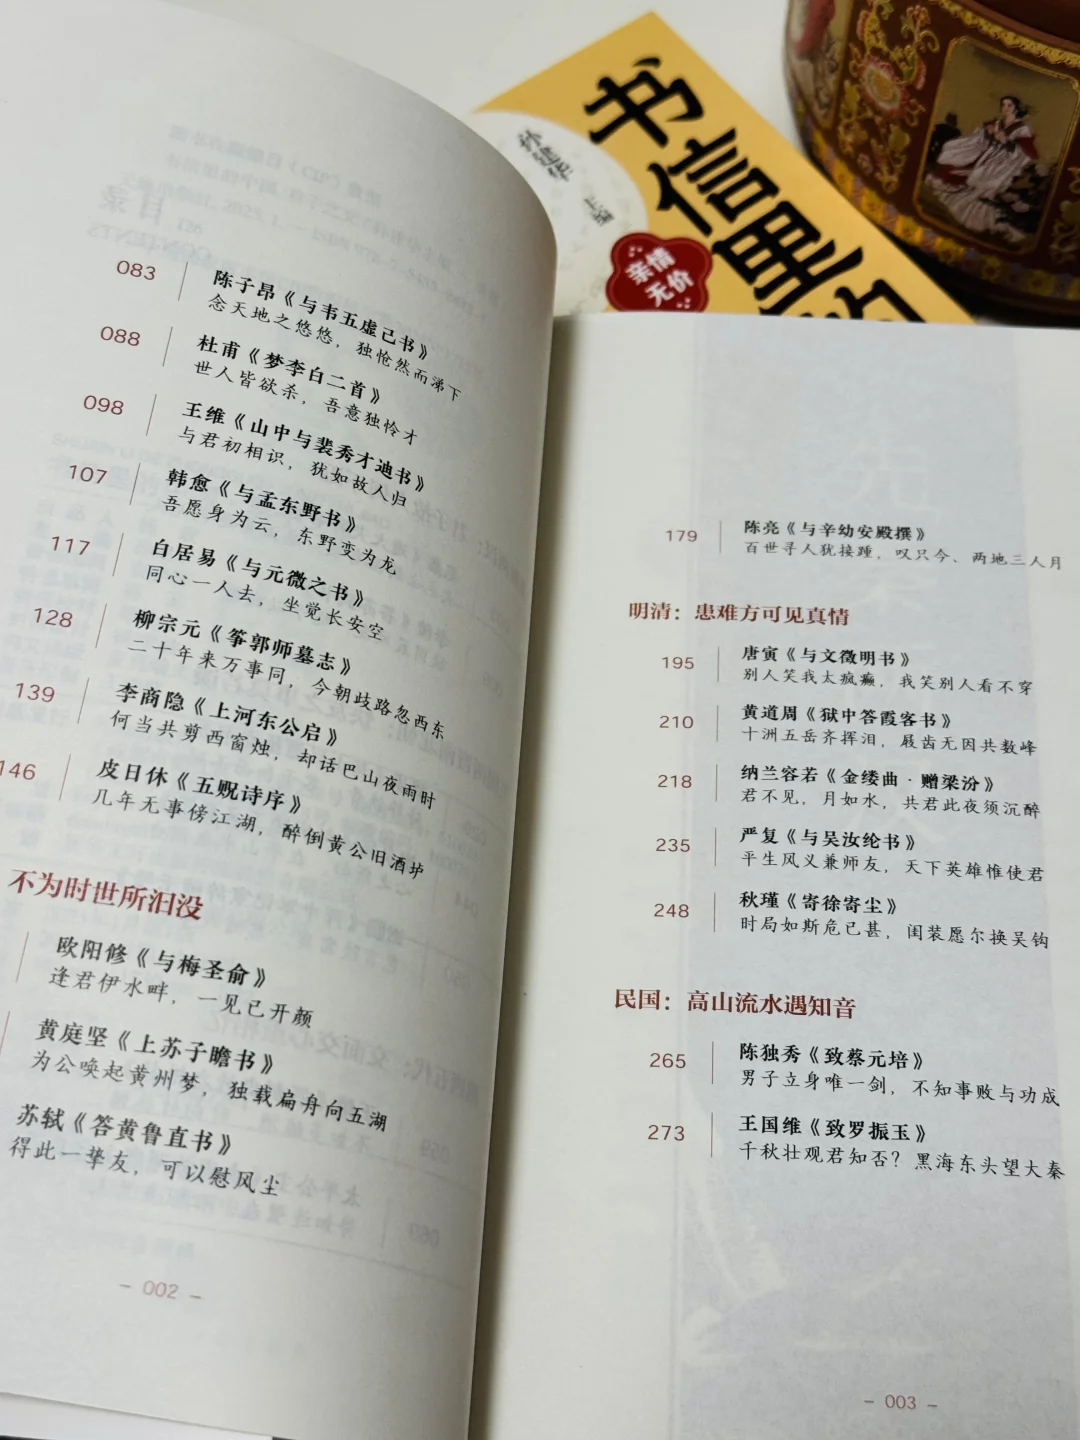 书信里的
孙建华 主编
亲情
无价
083
陈子昂《与韦五虚己书》
念天地之悠悠，独怆然而涕下
088
杜甫《梦李白二首》
世人皆欲杀，吾意独怜才
098
王维《山中与裴秀才迪书》
与君初相识，犹如故人归
107
韩愈《与孟东野书》
吾愿身为云，东野变为龙
117
白居易《与元微之书》
同心一人去，坐觉长安空
128
柳宗元《筝郭师墓志》
二十年来万事同，今朝歧路忽西东
139
李商隐《上河东公启》
何当共剪西窗烛，却话巴山夜雨时
146
皮日休《五贶诗序》
几年无事傍江湖，醉倒黄公旧酒垆
不为时世所汩没
欧阳修《与梅圣俞》
逢君伊水畔，一见已开颜
黄庭坚《上苏子瞻书》
为公唤起黄州梦，独载扁舟向五湖
苏轼《答黄鲁直书》
得此一挚友，可以慰风尘
– 002 –
179
陈亮《与辛幼安殿撰》
百世寻人犹接踵，叹只今、两地三人月
明清：患难方可见真情
195
唐寅《与文徵明书》
别人笑我太疯癫，我笑别人看不穿
210
黄道周《狱中答霞客书》
十洲五岳齐挥泪，屐齿无因共数峰
218
纳兰容若《金缕曲·赠梁汾》
君不见，月如水，共君此夜须沉醉
235
严复《与吴汝纶书》
平生风义兼师友，天下英雄惟使君
248
秋瑾《寄徐寄尘》
时局如斯危已甚，闺装愿尔换吴钩
民国：高山流水遇知音
265
陈独秀《致蔡元培》
男子立身唯一剑，不知事败与功成
273
王国维《致罗振玉》
千秋壮观君知否？黑海东头望大秦
– 003 –